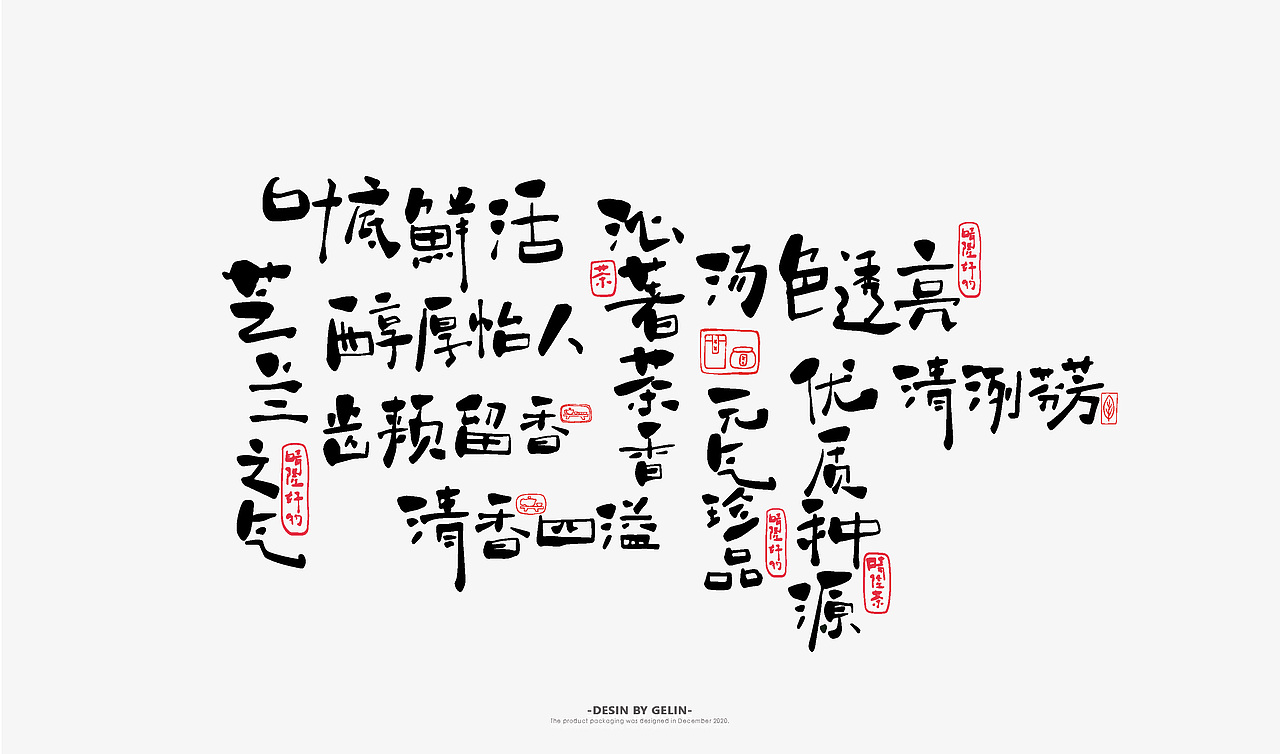 叶底鮮活
芝兰之气
晴隆好的
醇厚怡人
齿颊留香
清香四溢
沁著茶香
茶
汤色透亮
晴隆好的
元气珍品
晴隆好的
优质种源
晴隆茶
清洌芬芳
-DESIN BY GELIN-
The product packaging was designed in December 2020.